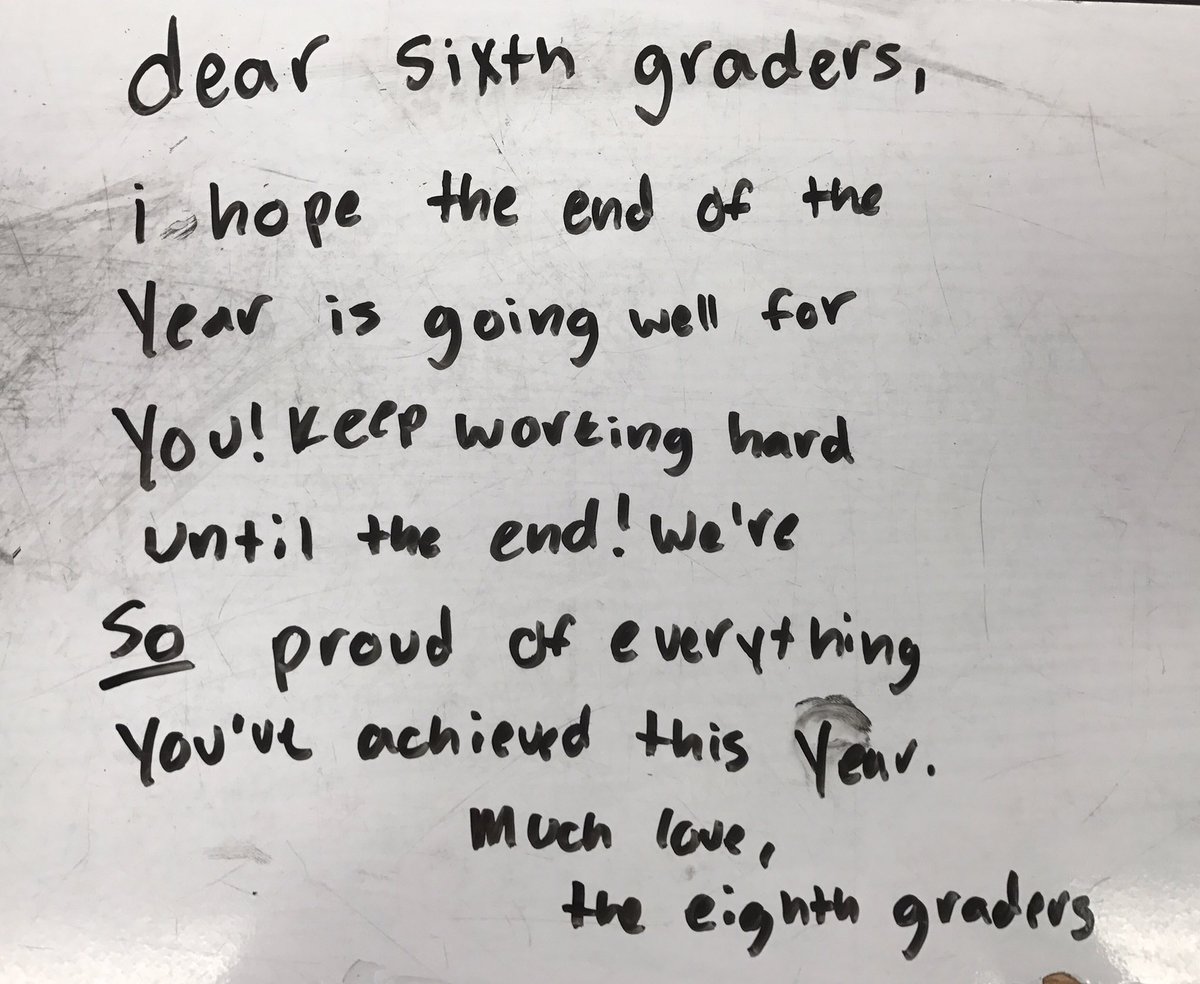 dear sixth graders,
i hope the end of the
Year is going well for
You! Keep working hard
until the end! We're
So proud of everything
You've achieved this Year.
Much love,
the eighth graders